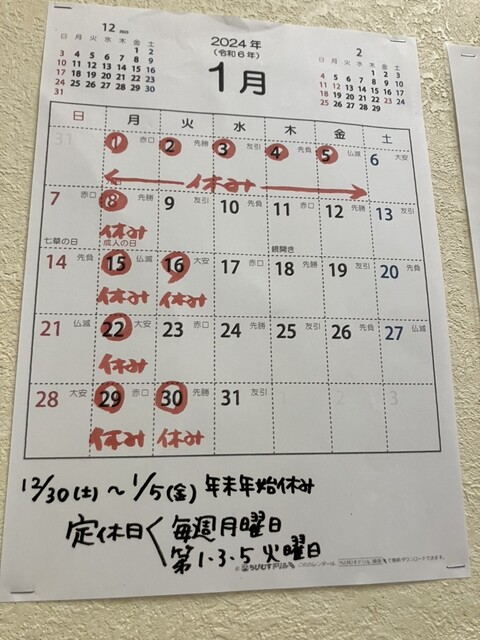 12 2023
日 月 火 水 木 金 土
1 2
3 4 5 6 7 8 9
10 11 12 13 14 15 16
17 18 19 20 21 22 23
24 25 26 27 28 29 30
31
2024年
(令和6年)
1月
2
日 月 火 水 木 金 土
1 2 3
4 5 6 7 8 9 10
11 12 13 14 15 16 17
18 19 20 21 22 23 24
25 26 27 28 29
日 月 火 水 木 金 土
31 1 赤口 2 先勝 3 友引 4 先負 5 仏滅 6 大安
休み
7 赤口 8 先勝 9 友引 10 先負 11 赤口 12 先勝 13 友引
休み
七草の日 成人の日 鏡開き
14 先負 15 仏滅 16 大安 17 赤口 18 先勝 19 友引 20 先負
休み 休み
21 仏滅 22 大安 23 赤口 24 先勝 25 友引 26 先負 27 仏滅
休み
28 大安 29 赤口 30 先勝 31 友引 1 2 3
休み 休み
12/30(土)～1/5(金) 年末年始休み
定休日 毎週月曜日
第1・3・5 火曜日
ちびむすドリル このカレンダーは
で無料ダウンロードできます。